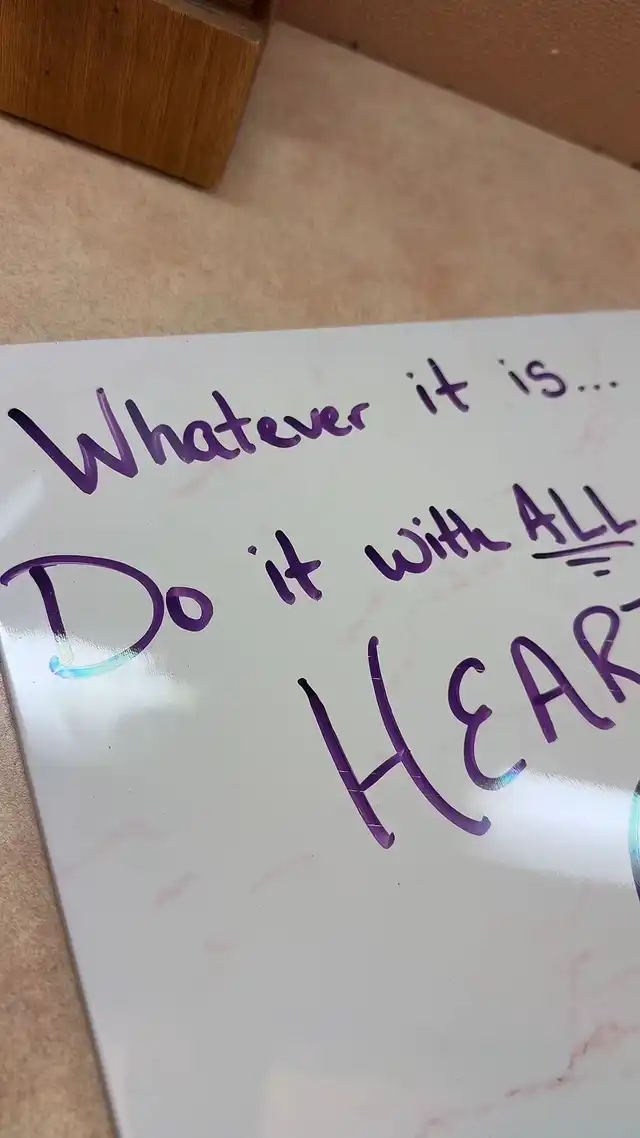 Whatever it is...
Do it with ALL
HEART